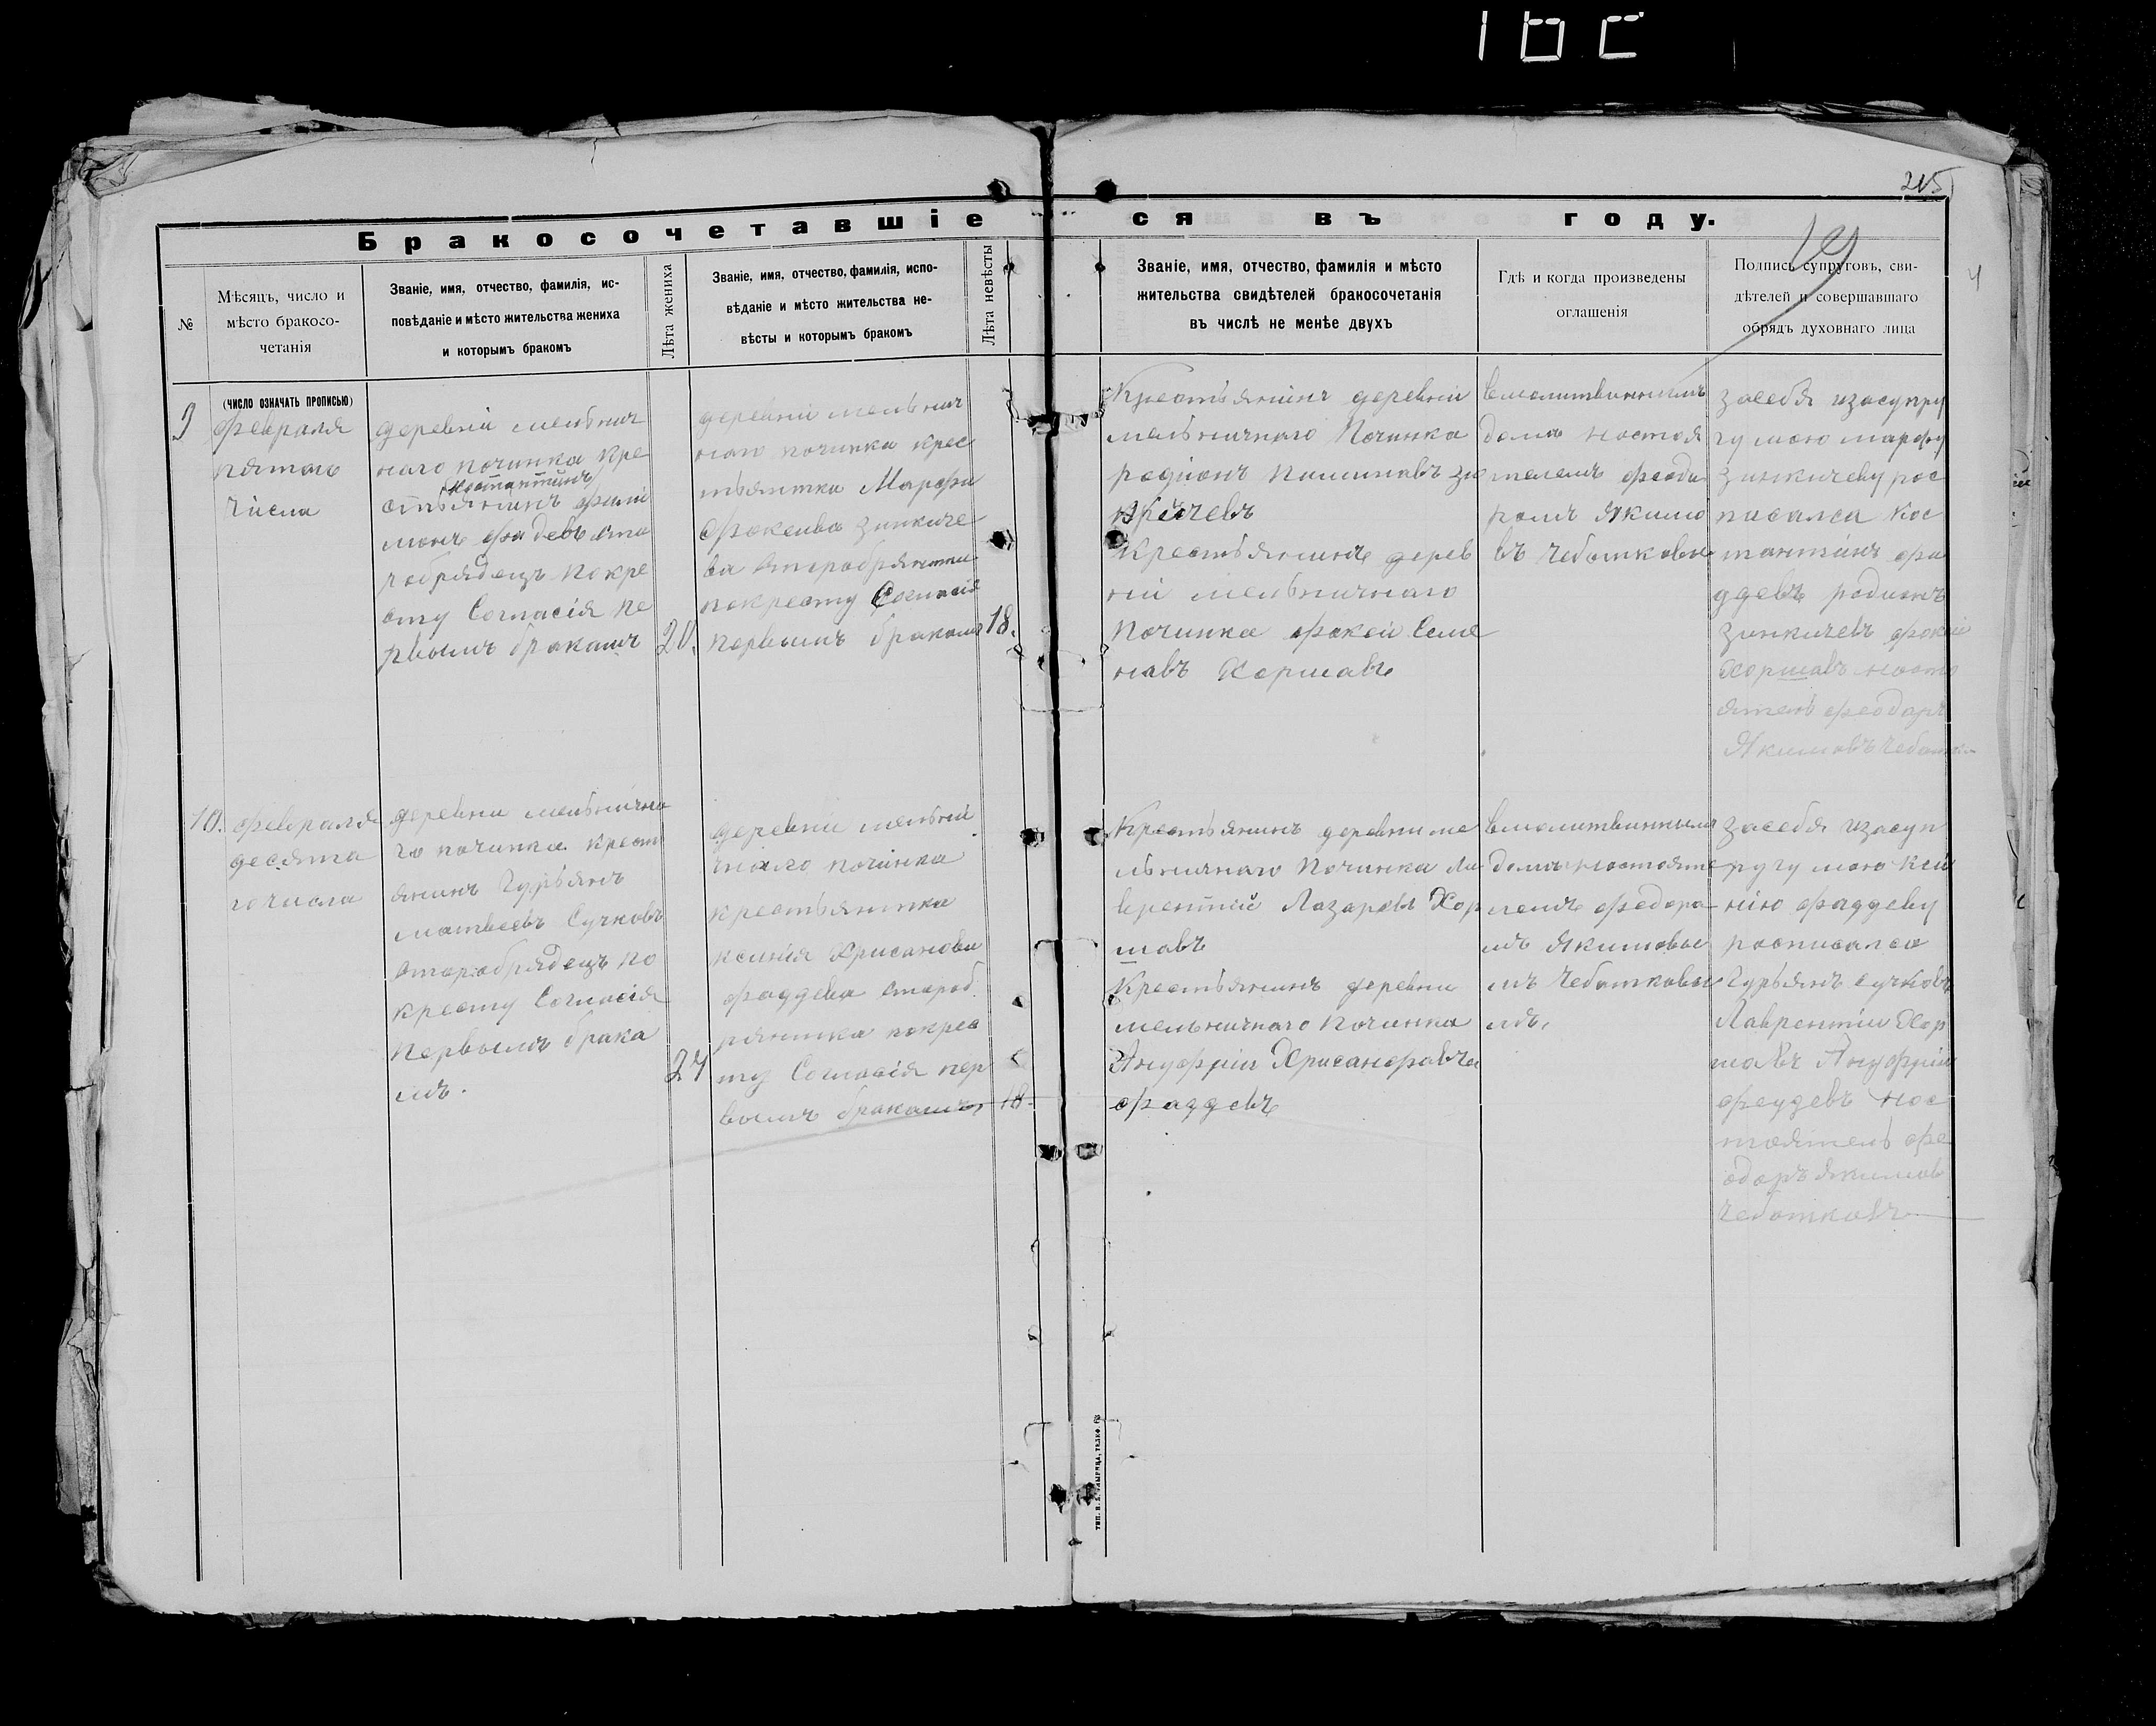 215
19
4
Бракосочетавшіеся въ году.
№
Мѣсяцъ, число и
мѣсто бракосо-
четанія
Званіе, имя, отчество, фамилія, ис-
повѣданіе и мѣсто жительства жениха
и которымъ бракомъ
Лѣта жениха
Званіе, имя, отчество, фамилія, испо-
вѣданіе и мѣсто жительства не-
вѣсты и которымъ бракомъ
Лѣта невѣсты
Званіе, имя, отчество, фамилія и мѣсто
жительства свидѣтелей бракосочетанія
въ числѣ не менѣе двухъ
Гдѣ и когда произведены
оглашенія
Подпись супруговъ, сви-
дѣтелей и совершавшаго
обрядъ духовнаго лица
(ЧИСЛО ОЗНАЧАТЬ ПРОПИСЬЮ)
9
Февраля
пятаго
числа
деревни мельнич
наго починка кре
Костантинъ
стьянинъ фили
монъ фадевъ ста
робрядецъ покре
сту Согласія пе
рвымъ бракамъ
20.
деревни мельнич
наго починка крес
тьянтка Марфа
Фокеива зинкиче
ва старобрянтка
покресту Согласія
первымъ бракамъ
18.
Крестьянинъ деревни
мельничнаго Починка
родіонъ
нкичевъ
Крестьянинъ дерев
ни мельничнаго
Починка фокей Семе
навъ Хоршавъ
вмолитвиннимъ
дома настоя
телемъ феода
ромъ Якимо
въ Чеботковы
засебя изасупру
гу мою марфу
зинкичеву рос
писалса Кос
тантинъ фа
ддевъ родионъ
зинкичевъ фокей
Хоршавъ насто
ятель феодаръ
Якимовъ
10.
февраля
десята
гочисла
деревни мельнична
го починка крест
янинъ Гурьянъ
матвеевъ Сучковъ
старобрядецъ по
кресту Согласія
Первымъ брака
мъ.
24
деревни мельни
чнаго починка
крестьянтка
ксинія Хрисанова
фаддева староб
рянтка покрес
ту Согласія пер
вымъ бракамъ,
18.
Крестьянинъ деревни ме
льничнаго Починка Ла
врентий Лазаревъ Хор
шавъ
Крестьянинъ деревни
мельничнаго Починка
Ануфрій
фаддевъ
вмолитвинным
домъ настояте
лемъ федора
мъ Якимовы
мъ Чеботковы
мъ.
засебя изасуп
ругу мою Ксе
нію фаддеву
росписалса
Гурьянъ Сучковъ
Лаврентіи Хор
шавъ Ануфріи
феддевъ нас
тоятель фе
одаръ якимов
Чеботковъ